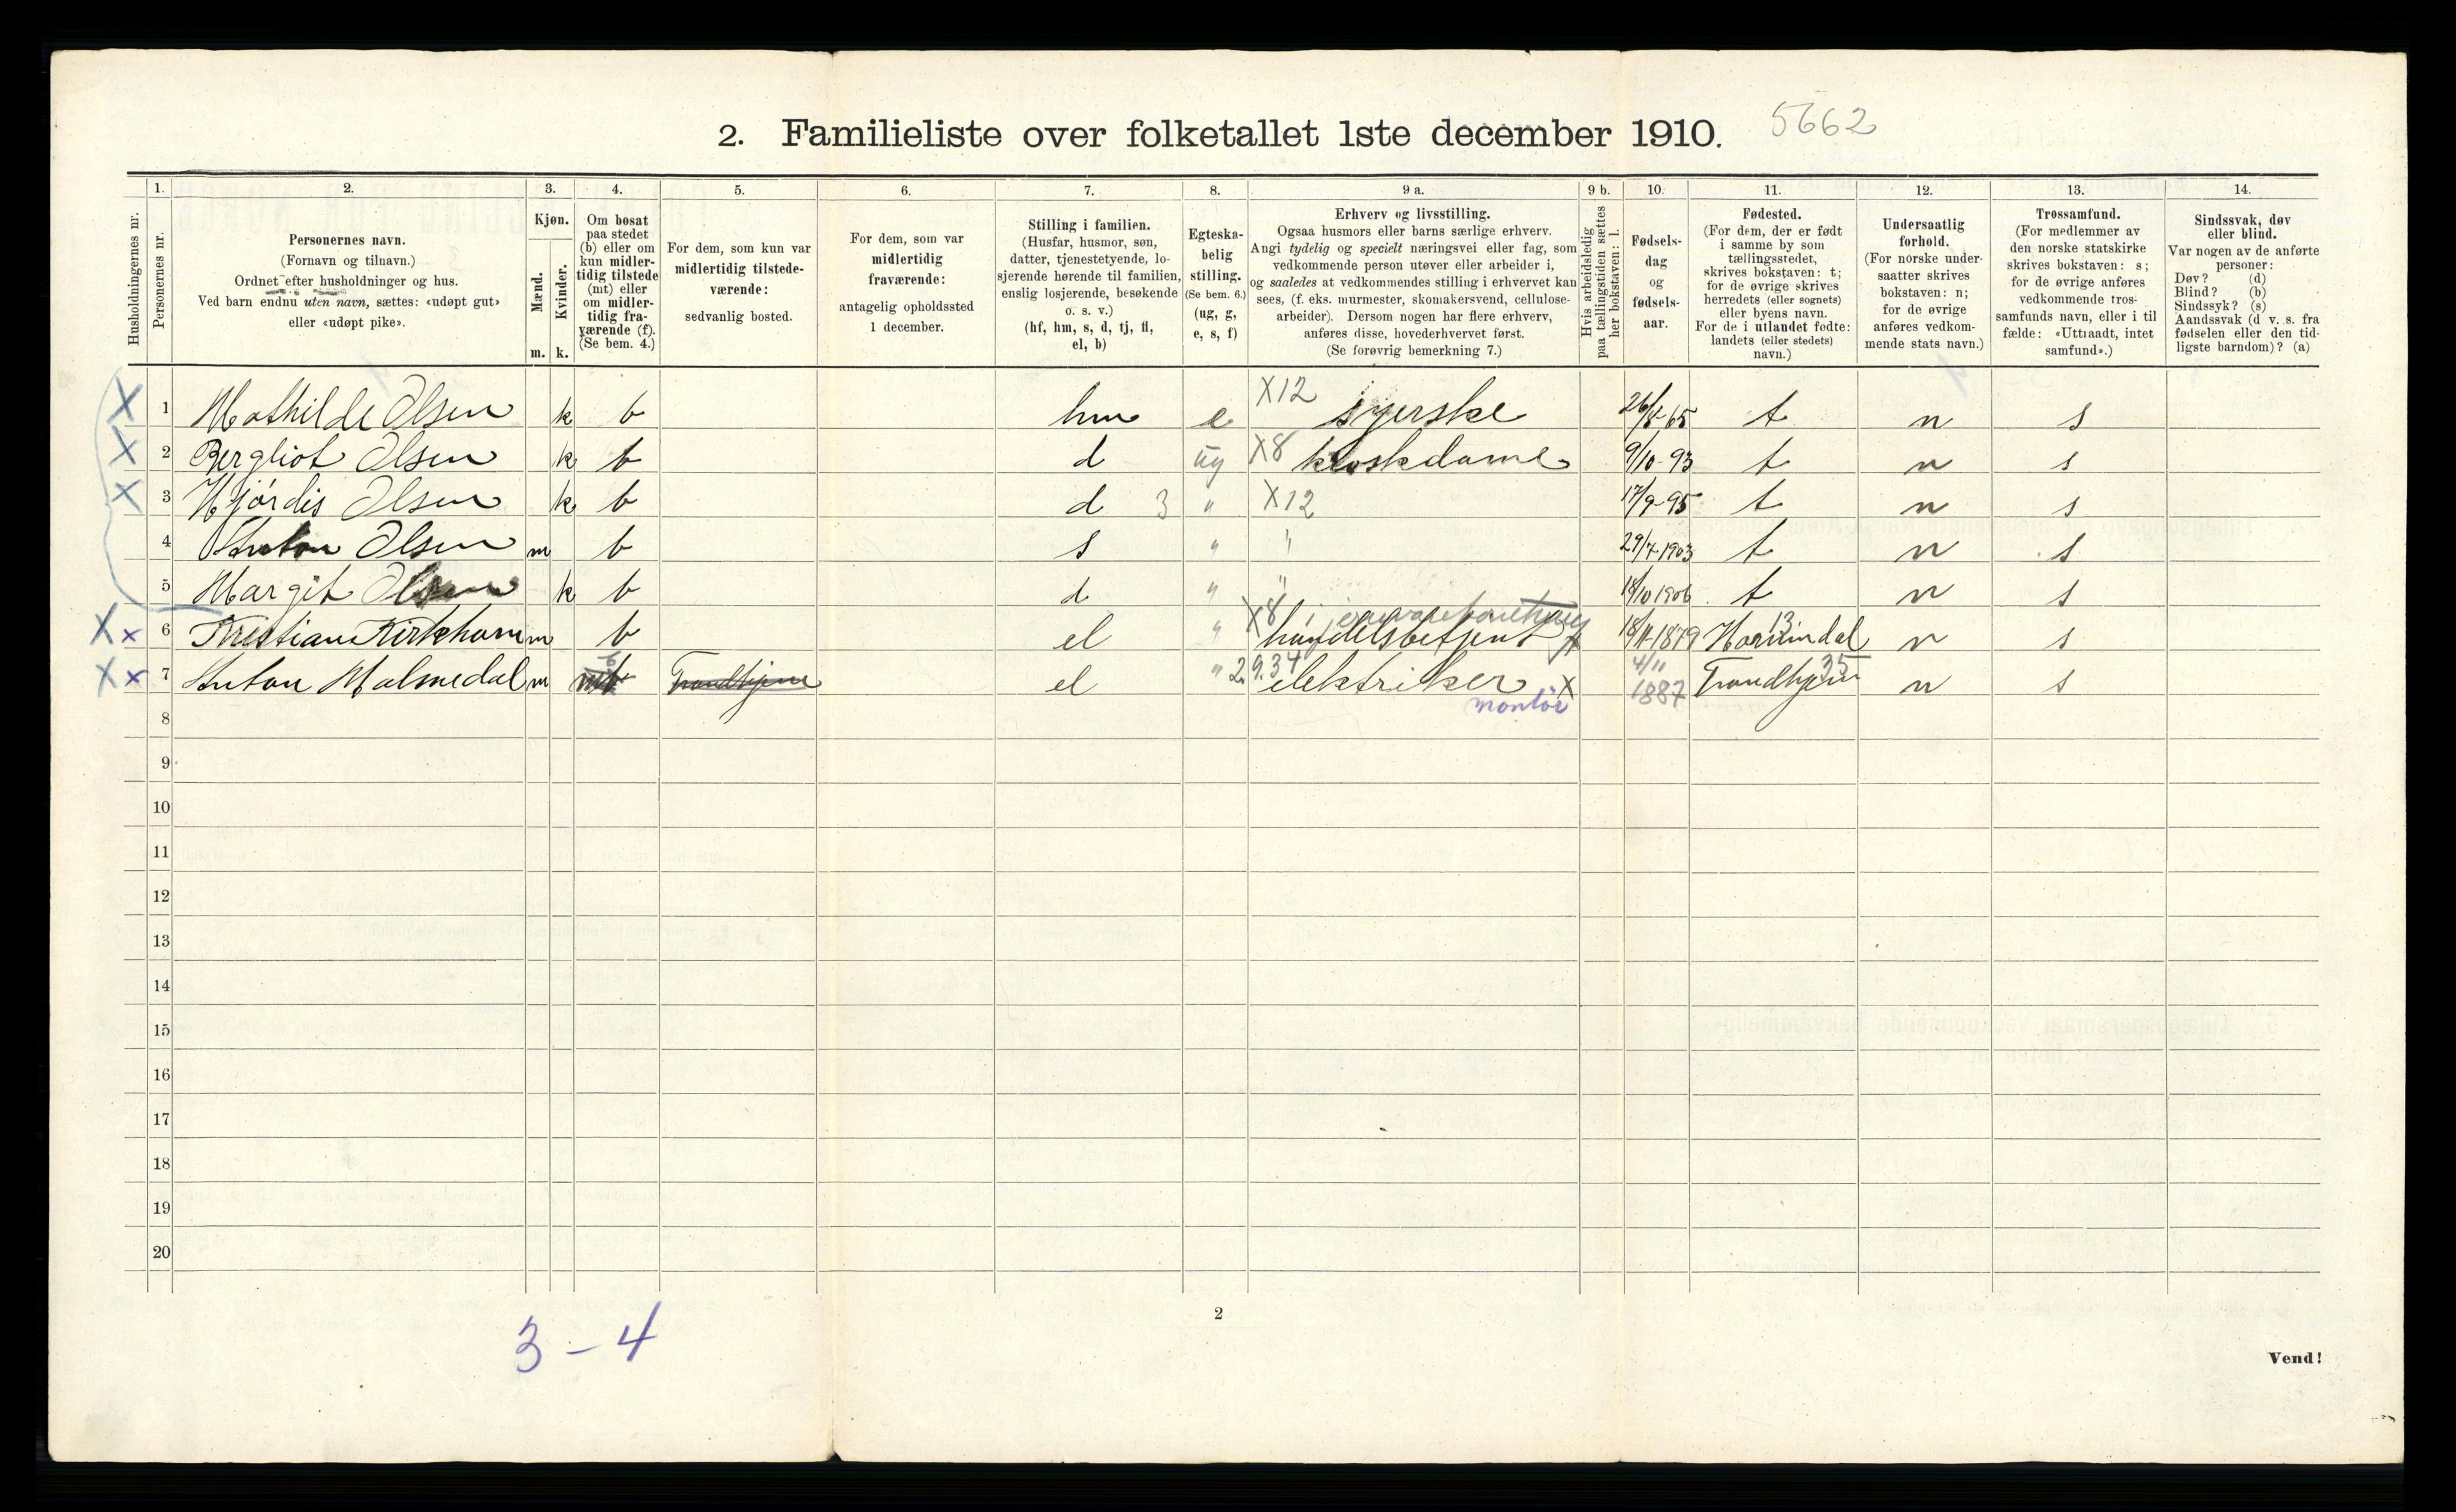 2. Familieliste over folketallet 1ste december 1910. 5662
Husholdningernes nr.
1. Personernes nr.
2. Personernes navn.
(Fornavn og tilnavn.)
Ordnet efter husholdninger og hus.
Ved barn endnu uten navn, sættes: «udøpt gut»
eller «udøpt pike».
3. Kjøn.
Mænd. m.
Kvinder. k.
4. Om bosat
paa stedet
(b) eller om
kun midler-
tidig tilstede
(mt) eller
om midler-
tidig fra-
værende (f).
(Se bem. 4.)
5. For dem, som kun var
midlertidig tilstede-
værende:
sedvanlig bosted.
6. For dem, som var
midlertidig
fraværende:
antagelig opholdssted
1 december.
7. Stilling i familien.
(Husfar, husmor, søn,
datter, tjenestetyende, lo-
sjerende hørende til familien,
enslig losjerende, besøkende
o. s. v.)
(hf, hm, s, d, tj, fl,
el, b)
8. Egteska-
belig
stilling.
(Se bem. 6.)
(ug, g,
e, s, f)
9 a. Erhverv og livsstilling.
Ogsaa husmors eller barns særlige erhverv.
Angi tydelig og specielt næringsvei eller fag, som
vedkommende person utøver eller arbeider i,
og saaledes at vedkommendes stilling i erhvervet kan
sees, (f. eks. murmester, skomakersvend, cellulose-
arbeider). Dersom nogen har flere erhverv,
anføres disse, hovederhvervet først.
(Se forøvrig bemerkning 7.)
9 b. Hvis arbeidsledig
paa tællingstiden sættes
her bokstaven: l.
10. Fødsels-
dag
og
fødsels-
aar.
11. Fødested.
(For dem, der er født
i samme by som
tællingsstedet,
skrives bokstaven: t;
for de øvrige skrives
herredets (eller sognets)
eller byens navn.
For de i utlandet fødte:
landets (eller stedets)
navn.)
12. Undersaatlig
forhold.
(For norske under-
saatter skrives
bokstaven: n;
for de øvrige
anføres vedkom-
mende stats navn.)
13. Trossamfund.
(For medlemmer av
den norske statskirke
skrives bokstaven: s;
for de øvrige anføres
vedkommende tros-
samfunds navn, eller i til
fælde: «Uttraadt, intet
samfund».)
14. Sindssvak, døv
eller blind.
Var nogen av de anførte
personer:
Døv? (d)
Blind? (b)
Sindssyk? (s)
Aandssvak (d v. s. fra
fødselen eller den tid-
ligste barndom)? (a)
X 1 Mathilde Olsen k b hm e X12 syerske 26/8-65 t n s
X 2 Bergliot Olsen k b d ug X8 kioskdame 9/10-93 t n s
X 3 Hjördis Olsen k b d 3 " X12 17/9-95 t n s
4 Anton Olsen m b s " " 29/7-1903 t n s
5 Margit Olsen k b d " " 18/10 1906 t n s
X x 6 Kristian Kirkhorn m b el " X8 handelsbetjent X 18/11-1879 Hornindal 13 n s
X x 7 Anton Malmedal m b Trondhjem el " 2.9.34 elektriker X 4/11 1887 Trondhjem 35 n s
montör
8
9
10
11
12
13
14
15
16
17
18
19
20
2
3 - 4
Vend!